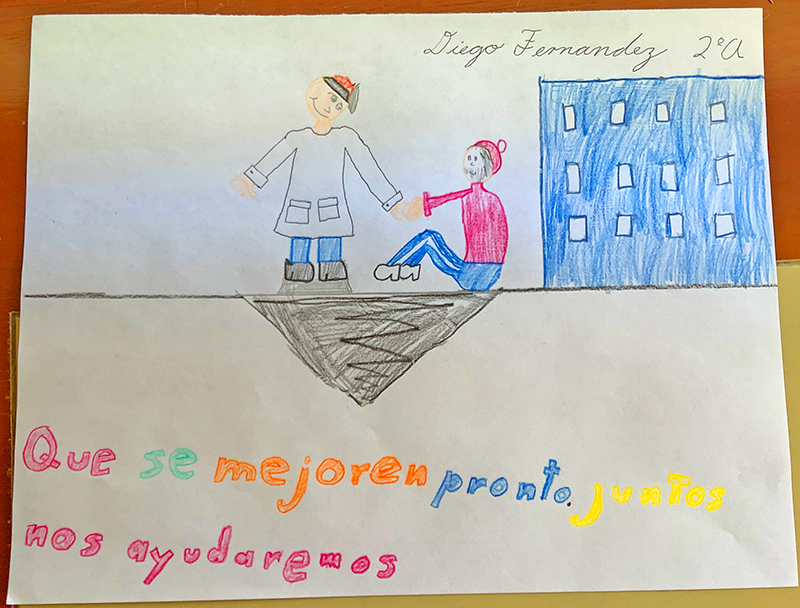 Diego Fernandez 2ºA
Que se mejoren pronto. juntos
nos ayudaremos